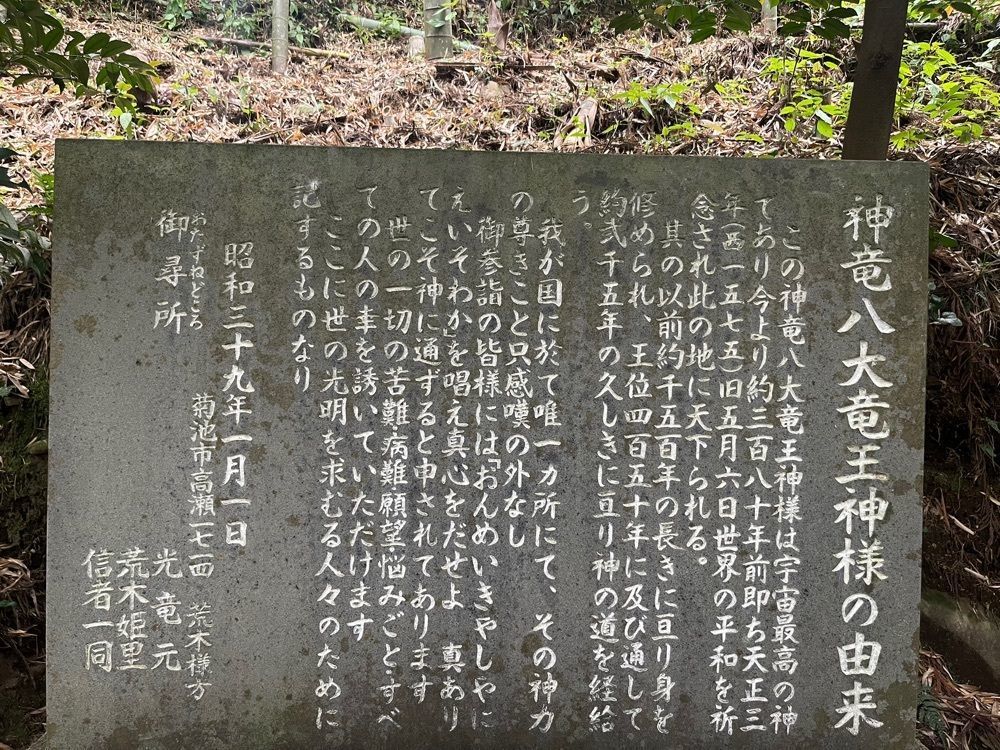 神竜八大竜王神様の由来
この神竜八大竜王神様は宇宙最高の神
であり今より約三百八十年前即ち天正三
年(西一五七五)旧五月六日世界の平和を祈
念され此の地に天下られる。
其の以前約千五百年の長きに亘り身を
修められ、王位四百五十年に及び通して
約弐千五年の久しきに亘り神の道を経給
う。
我が国に於て唯一カ所にて、その神力
の尊きこと只感嘆の外なし
御参詣の皆様には「おんめいきやしやに
えいそわか」を唱え真心をだせよ 真あり
てこそ神に通ずると申されてあります
世の一切の苦難・病難・願望・悩みごと・すべ
ての人の幸を誘いていただけます
ここに世の光明を求むる人々のために
記するものなり
昭和三十九年一月一日
御尋所 菊池市高瀬一七一四 荒木様方
おたずねどころ
光竜元
荒木姫里
信者一同